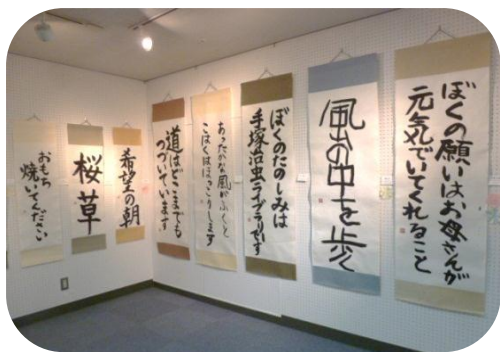 ぼくの願いはお母さんが
元気でいてくれること
風の中を歩く
ぼくのたのしみは
手塚治虫ライブラリです
あったかな風がふくと
こはくはほっこりします
道はどこまでも
つづいています
希望の朝
桜草
おもち
焼いてください